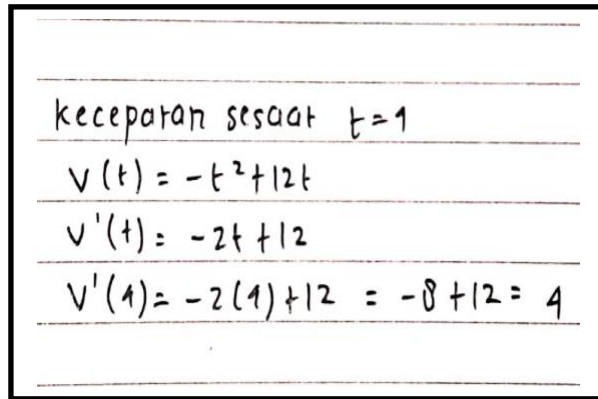 keceparan sesaat t=4
v(t) = -t²+12t
v'(t) = -2t+12
v'(4) = -2(4)+12 = -8+12 = 4